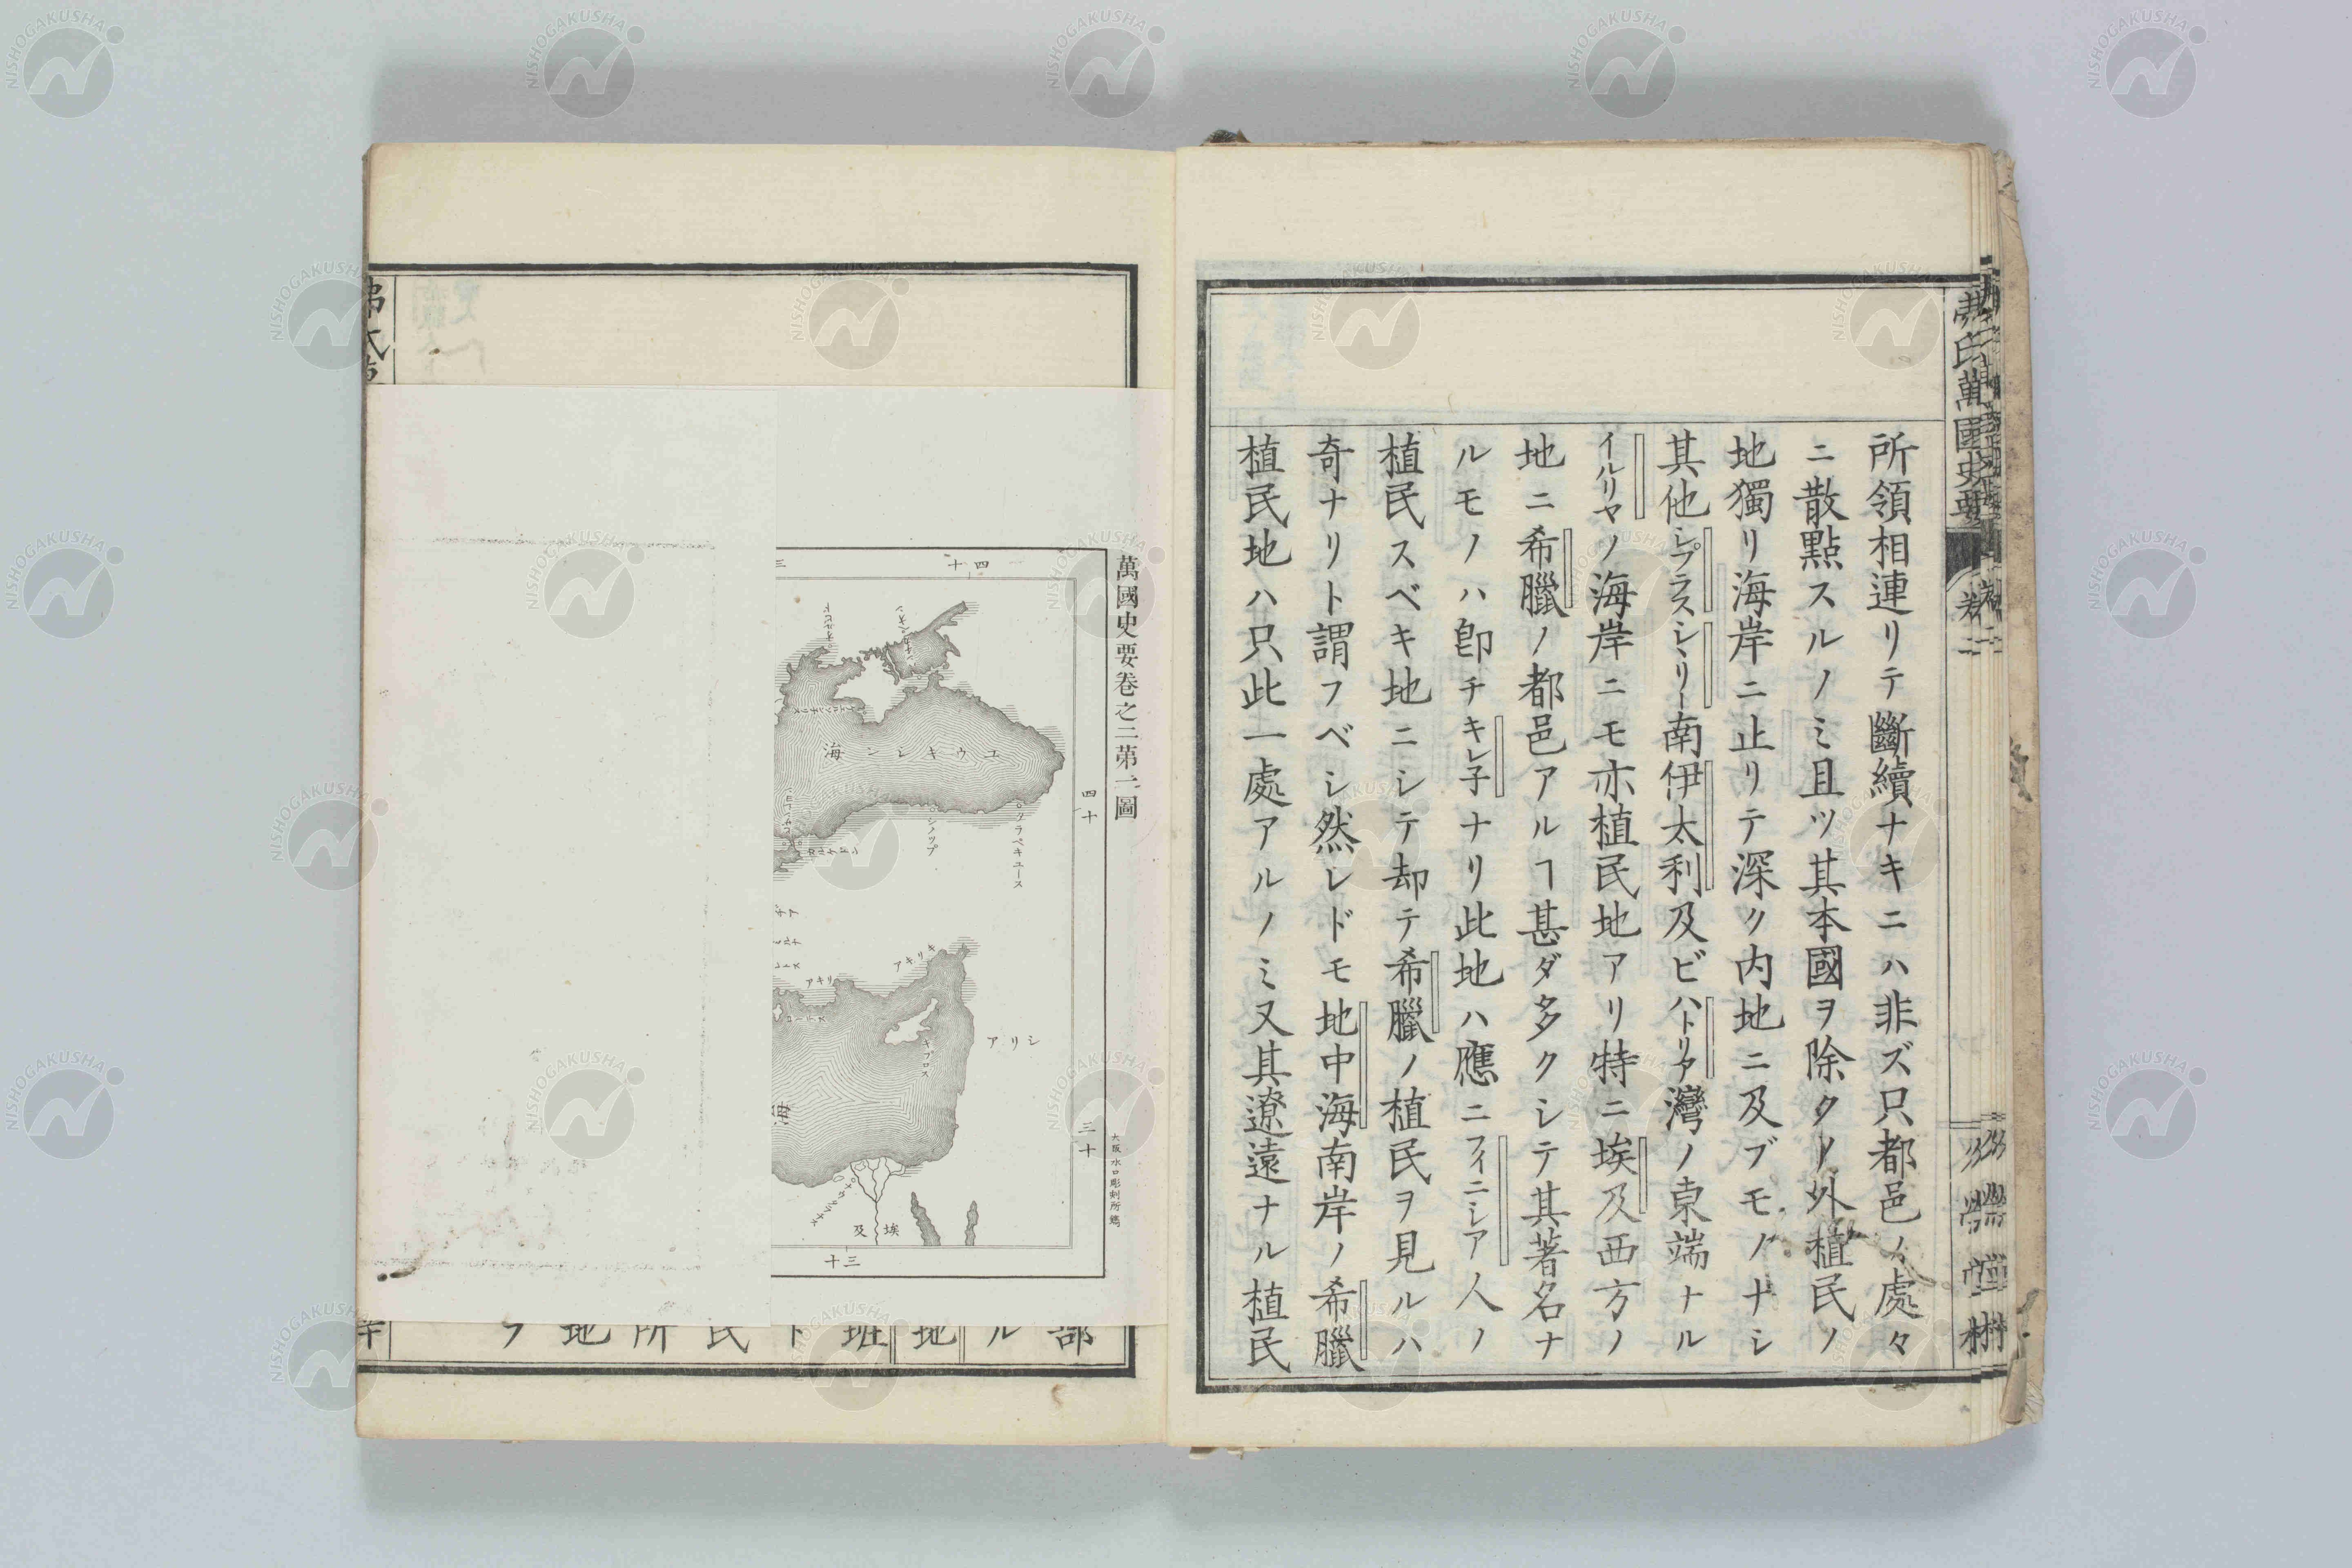 弗氏萬國史要
卷二
所領相連リテ斷續ナキニハ非ズ只都邑ノ處々
ニ散點スルノミ且ツ其本國ヲ除クノ外植民ノ
地獨リ海岸ニ止リテ深ク内地ニ及ブモノナシ
其他シプラスシヽリー南伊太利及ビハトリア灣ノ東端ナル
イルリヤノ海岸ニモ亦植民地アリ特ニ埃及西方ノ
地ニ希臘ノ都邑アルヿ甚ダ多クシテ其著名ナ
ルモノハ卽チキレ子ナリ此地ハ應ニフイニシア人ノ
植民スベキ地ニシテ却テ希臘ノ植民ヲ見ルハ
奇ナリト謂フベシ然レドモ地中海南岸ノ希臘
植民地ハ只此一處アルノミ又其遼遠ナル植民
萬國史要卷之二第二圖
大阪水口彫刻所鐫
四十
四十
三十
三十
海シンキウユ
シノップ
アキリキ
アキリ
キプロス
シリア
海
埃及
部
ル
地
班
ト
民
所
地
NISHOGAKUSHA